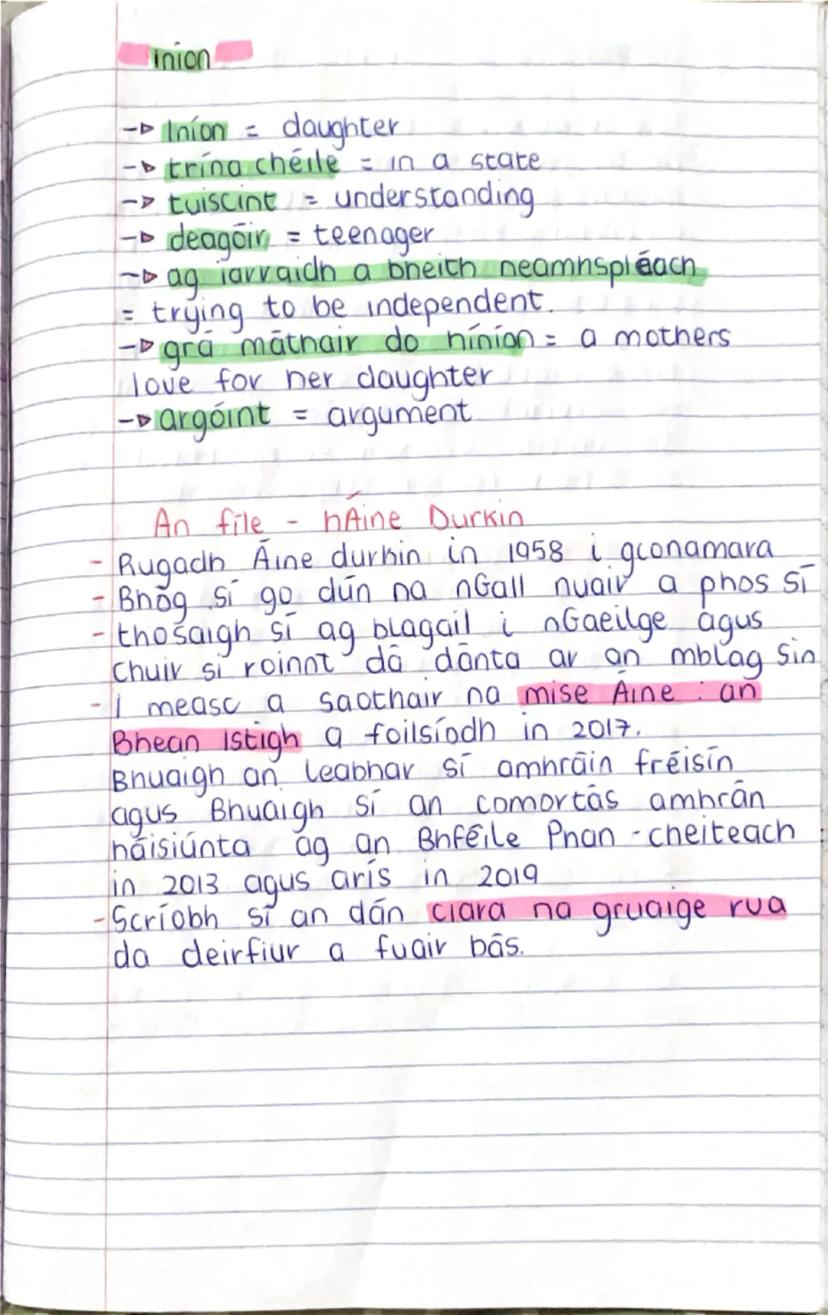 inion
-▷ Iníon = daughter
-▷ trína chéile = in a state
-▷ tuiscint = understanding
-▷ deagóir = teenager
-▷ ag iarraidh a bheith neamhspléach
= trying to be independent.
-▷ grá máthair do hiníon = a mothers
love for her daughter
-▷ argóint = argument
An file - hÁine Durkin
- Rugadh Áine durkin in 1958 i gconamara
- Bhóg sí go dún na nGall nuair a phos sí
- thosaigh sí ag blagáil i nGaeilge agus
chuir si roinnt dá dánta ar an mblag sin
- I measc a saothair na mise Áine : an
Bhean Istigh a foilsíodh in 2017.
Bhuaigh an leabhar sí amhráin fréisín
agus Bhuaigh sí an comortás amhrán
náisiúnta ag an Bhféile Phan-cheiteach
in 2013 agus arís in 2019
- Scríobh sí an dán ciara na gruaige rua
da deirfiur a fuair bás.